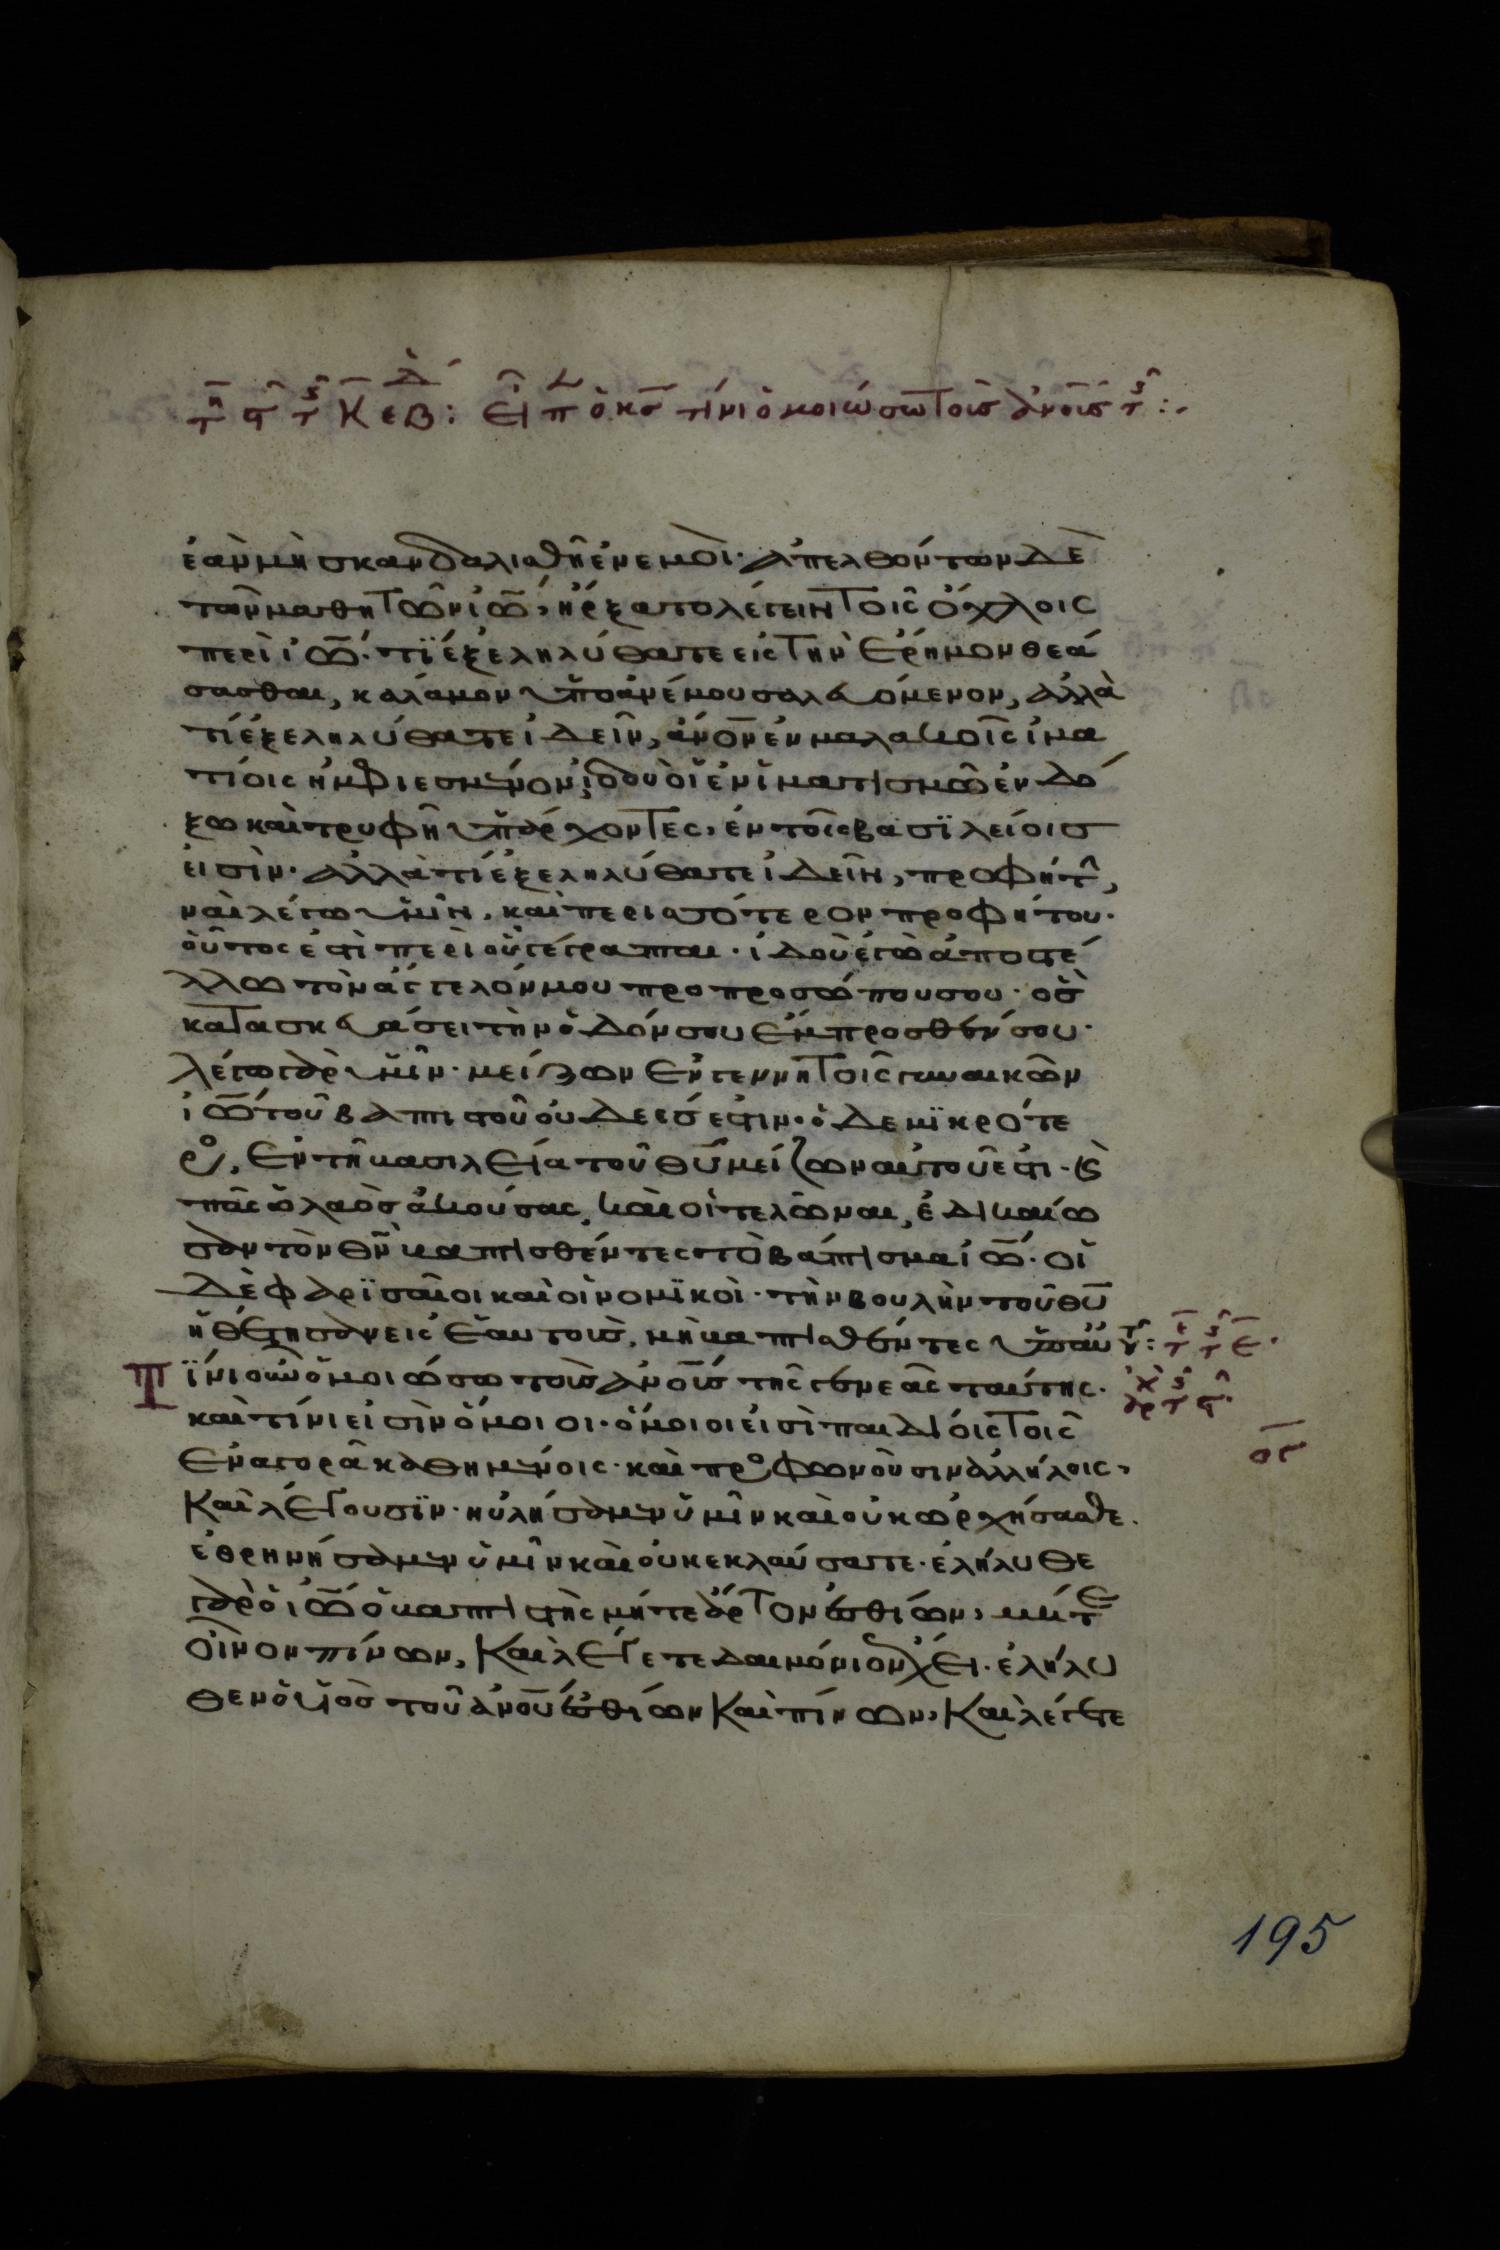 τη ϛ τ κυ εβδ : ειπ ο κσ τίνι ὁμοιώσω τοὶσ ἀνοῖσ τ :
ἐὰν μὴ σκανδαλισθῆ ἐν ἐμοὶ· ἀπελθόντων δὲ
τῶν μαθητῶν ἰω̅, ἤρξατο λέγειν τοῖς ὄχλοις
περὶ ἰω̅. τΐ ἐξεληλύθατε εἰς τὴν ἔρημον θεά
σασθαι, κάλαμον ὑπὸ ἀνέμου σαλευόμενον, ἀλλὰ
τί ἐξεληλύθατε ἰδεῖν, ἄνο̅ν ἐν μαλακοῖς ἱμα
τίοις ἠμφιεσμένον; ἰδοὺ οἱ ἐν ἱματισμῶ ἐνδό
ξω καὶ τρυφῆ ὑπάρχοντες, ἐν τοῖς βασϊλείοισ
εἰσὶν. ἀλλὰ τί ἐξεληλύθατε ἰδεῖν, προφήτ,
ναὶ λέγω ὑμῖν. καὶ περισσότερον προφήτου.
οὗτος ἐστὶ περὶ οὗ γέγραπται. ἰδοὺ ἐγὼ ἀποστέ
λλω τὸν ἄγγελόν μου προ προσώπου σου. ὃσ
κατασκευάσει τὴν ὁδόν σου ἔμπροσθέν σου.
λέγω γὰρ ὑμῖν. μείζων ἐν γεννητοῖς γυναικῶν
ἰω̅ τοῦ βαπτιστοῦ οὐδείσ ἐστιν. ὁ δε μϊκρότε
ρος, ἐν τῆ βασιλεία τοῦ θυ̅ μείζων αὐτοῦ ἐστι. καὶ
πᾶς ὁ λαὸσ ἀκούσας, καὶ οἱ τελῶναι, ἐδικαίω
σαν τὸν θν̅ βαπτισθέντες τὸ βάπτισμα ἰω̅. οἱ
δὲ φαρϊσαῖοι καὶ οἱ νομϊκοὶ. τὴν βουλὴν τοῦ θυ̅
ἠθέτησαν εἰς ἑαυτοὺσ, μὴ βαπτισθέντες ὑπαυ
Τΐνι οὖν ὁμοιώσω τοὺσ ἀνο̅ισ τῆς γενεᾶς ταύτης.
καὶ τίνι εἰσὶν ὅμοιοι. ὅμοιοι εἰσὶ παιδίοις τοῖς
ἐν ἀγορᾶ καθημένοις. καὶ προσφωνοὺσιν ἀλλήλοις,
Καὶ λέγουσϊν. ηὐλήσαμεν ὑμῖν καὶ οὐκ ὠρχήσασθε.
ἐθρηνήσαμεν ὑμῖν καὶ οὐκ ἐκλαύσατε. ἐλήλυθε
γὰρ ὁ ἰω̅ ὁ βαπτιστὴς μήτε ἄρτον ἐσθίων, μήτε
οἶνον πίνων, Καὶ λέγετε δαιμόνιον ἔχει. ἐλήλυ
θεν ὁ υἱὸσ τοῦ ἀνο̅υ ἐσθίων Καὶ πίνων, Καὶ λέγετε
ος
195